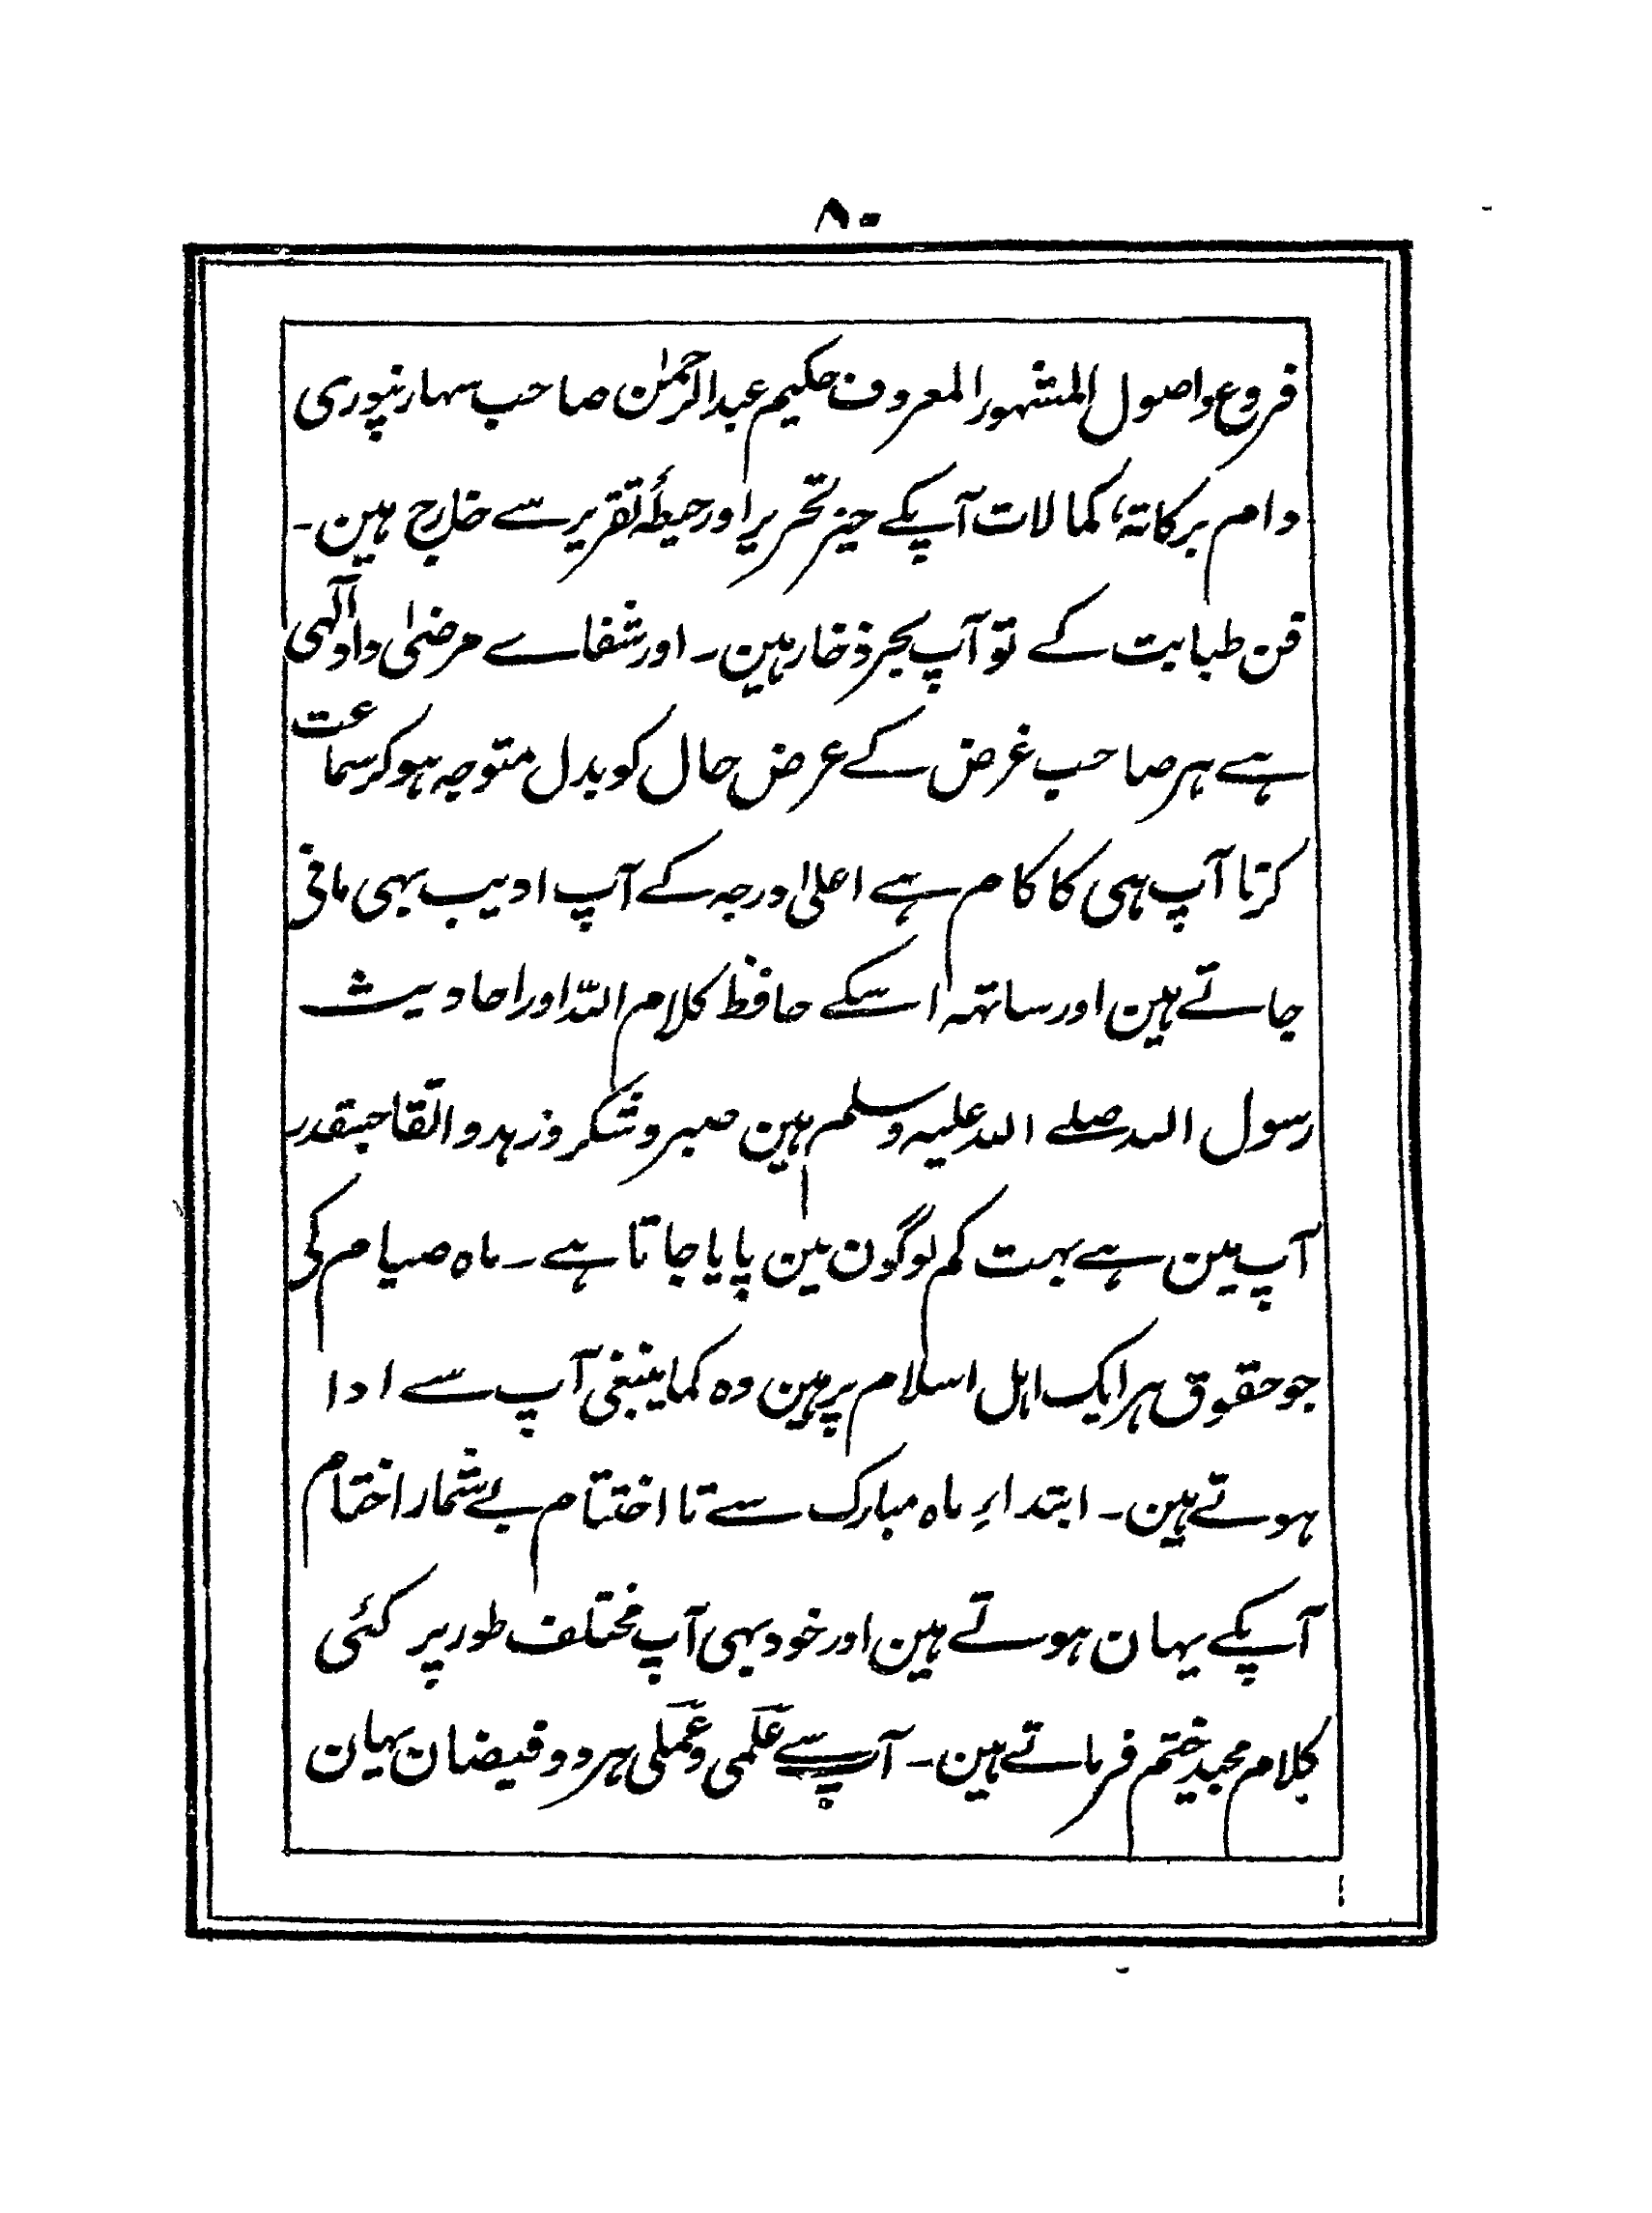 ۸۰
فروع واصول المشہور المعروف حکیم عبدالرحمٰن صاحب سہارنپوری
دام برکاتہ، کمالات آپکے حیز تحریر اور حیطۂ تقریر سے خارج ہین۔
فن طبابت کے تو آپ بحر ذخار ہین۔ اور شفاے مرضیٰ داد آلہی
ہے ہر صاحب غرض کے عرض حال کو بدل متوجہ ہوکر سماعت
کرنا آپ ہی کا کام ہے اعلیٰ درجہ کے آپ ادیب بہی مانی
جاتے ہین اور ساتہہ اسکے حافظ کلام اللہ اور احادیث
رسول اللہ صلے اللہ علیہ وسلم ہین صبر و شکر و زہد و اتقا جسقدر
آپ مین ہے بہت کم لوگون مین پایا جاتا ہے۔ ماہ صیام کی
جو حقوق ہر ایک اہل اسلام پر ہین وہ کما ینبغی آپ سے ادا
ہوتے ہین۔ ابتداءِ ماہ مبارک سے تا اختتام بے شمار اختتام
آپکے یہان ہوتے ہین اور خود بہی آپ مختلف طور پر کئی
کلام مجید ختم فرماتے ہین۔ آپ سے علمی و عملی ہر دو فیضان یہان